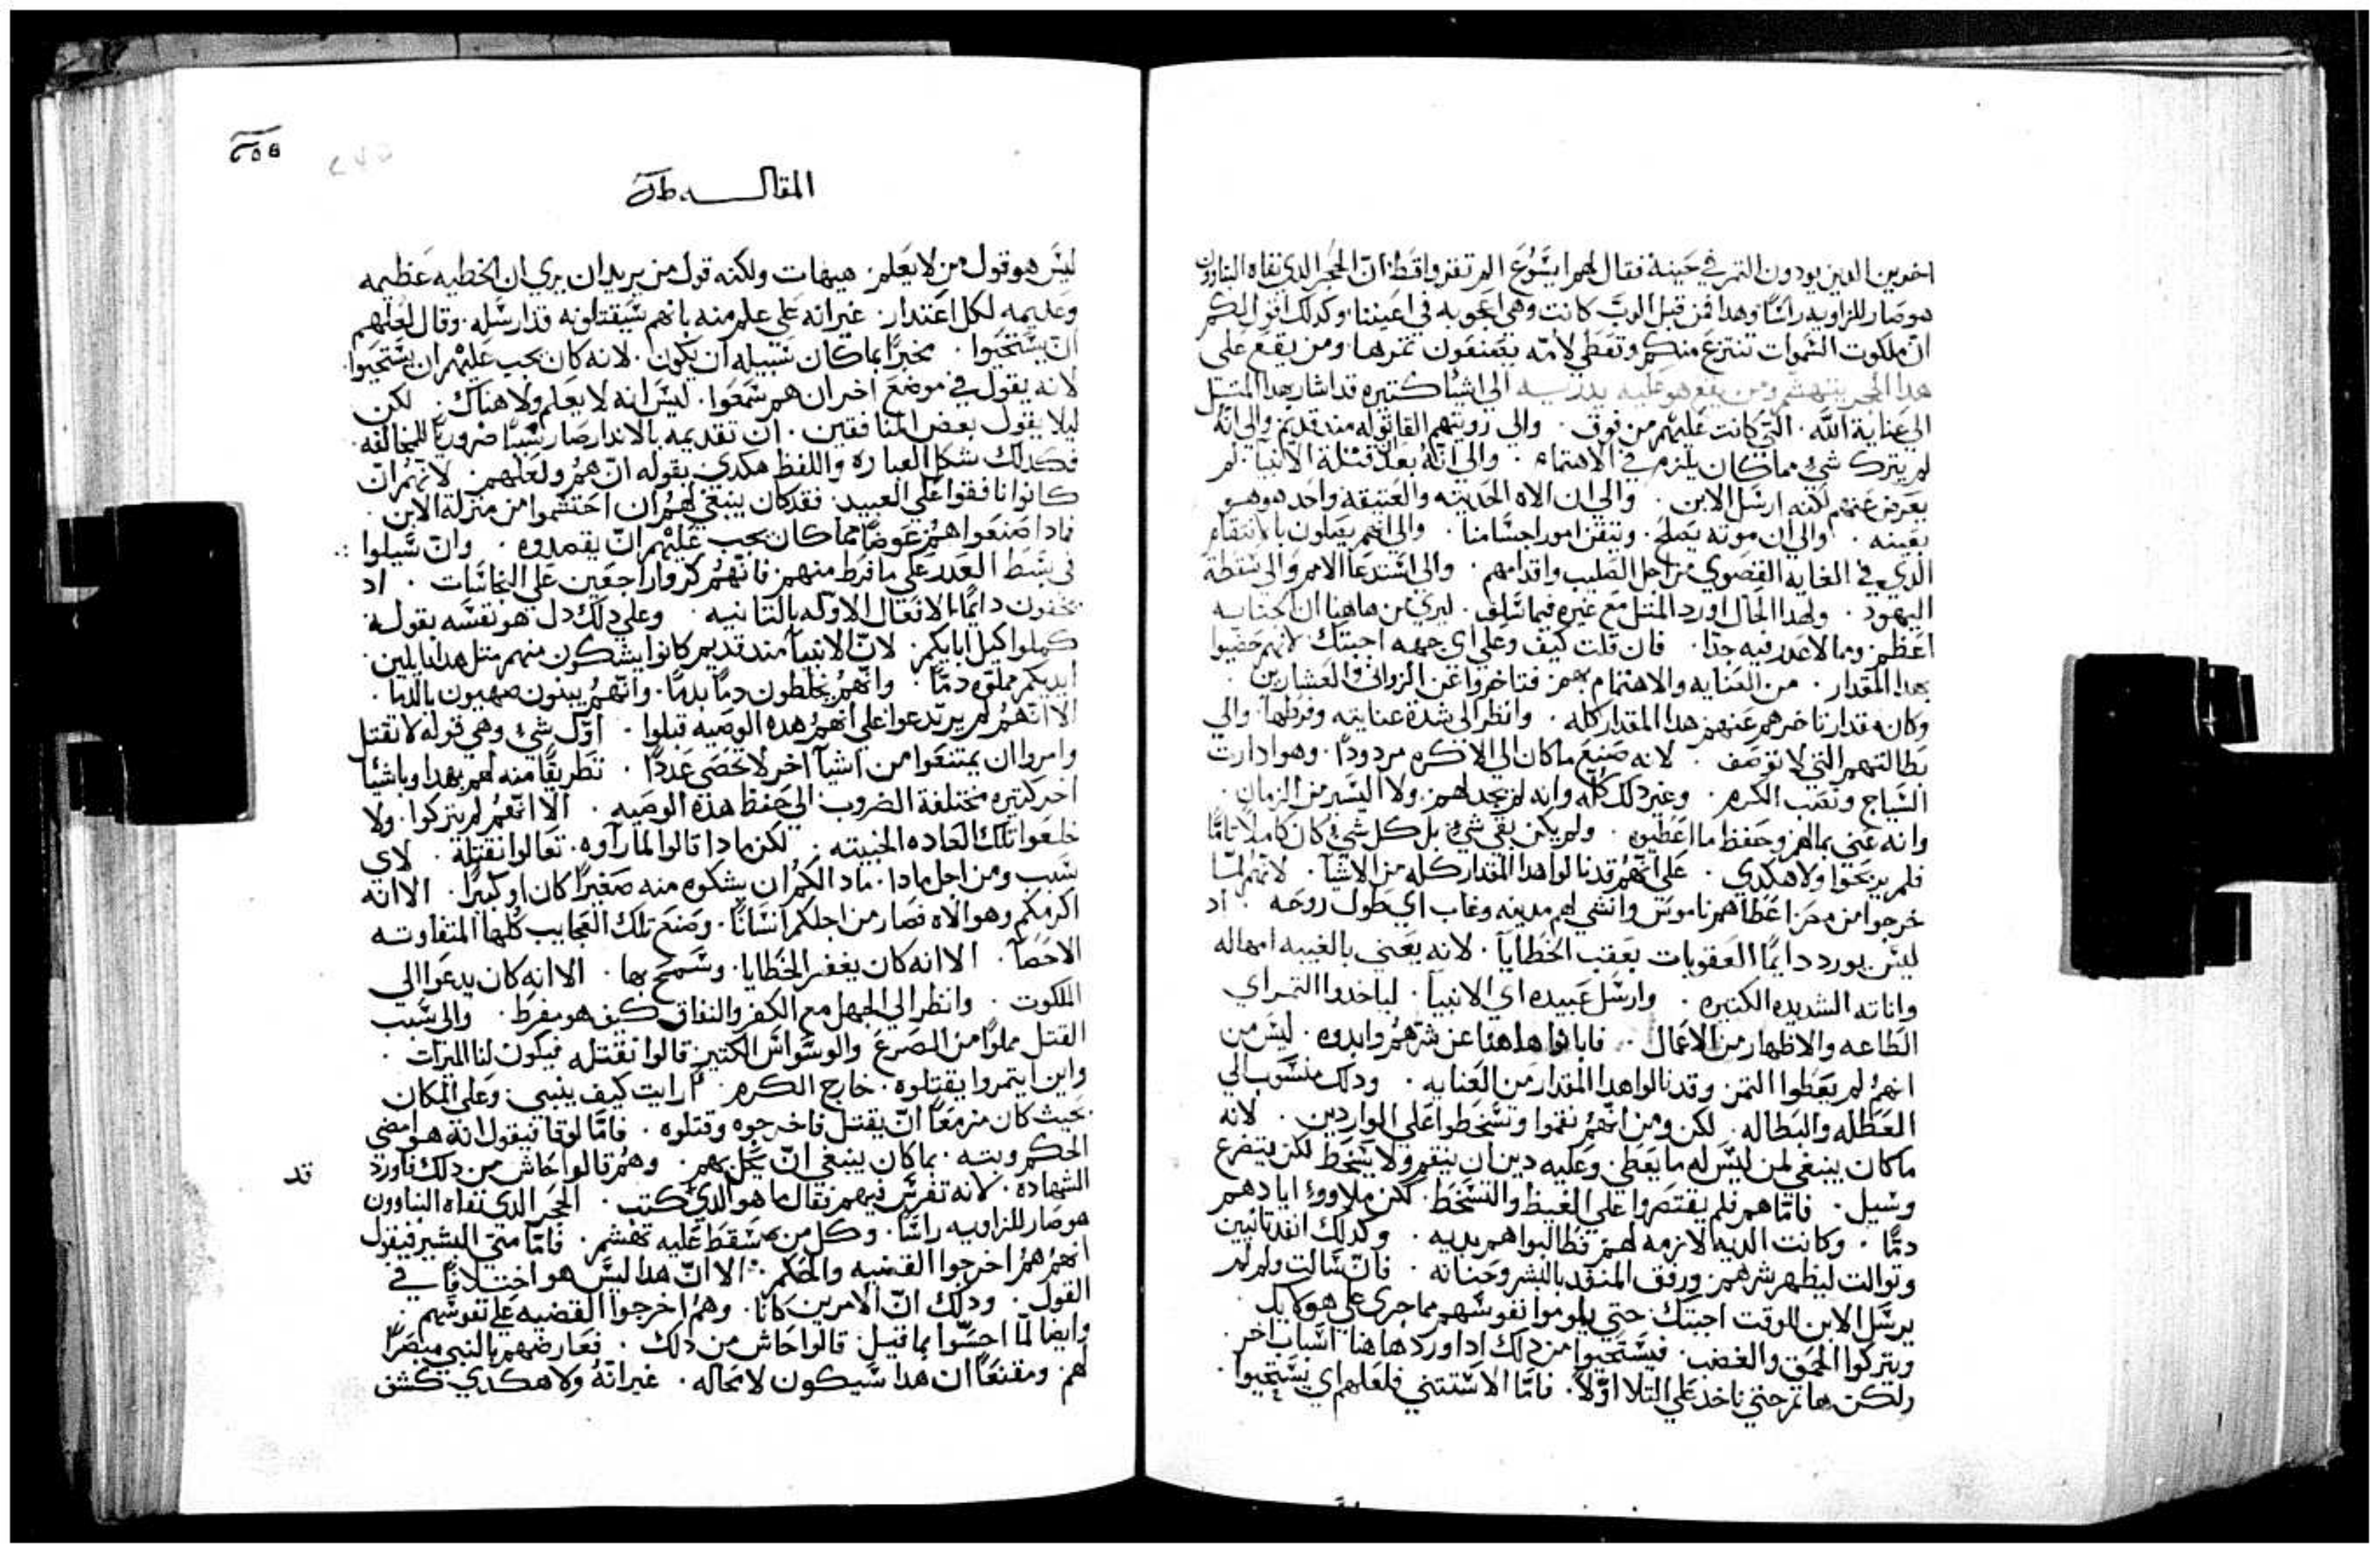 اخرين الدين يودون التمر في حينه فقال لهم ايسوع الم تقروا قط ان الحجر الدي نفاه البناوون
هو صار للزاويه راسًا وهدا فمن قبل الرب كانت وهي اعجوبه في اعيننا وكدلك اقول لكم
ان ملكوت السموات تنتزع منكم وتعطي لامه يصنعون تمرها ومن يقع علي
هدا الحجر يتهشم ومن يقع هو عليه يدريه الي اشيا كتيره قد اشار بهدا المتل
الي عناية الله التي كانت عليهم من فوق والي رويتهم القاتوله مند قديم والي انه
لم يترك شي مما كان يلزم في الاهتمام والي انه بعد قتلة الانبيا لم
يعرض عنهم لكنه ارسل الابن والي ان الاه الحديته والعتيقه واحد هو هو
بعينه والي ان موته يصلح ويتقن امورا جسامنا والي انهم يقبلون بالانتقام
الدي في الغايه القصوي من اجل الصليب واقدامهم والي استدعا الامم والي سقطة
اليهود ولهدا الحال اورد المتل مع غيره فيما سلف ليري من هاهنا ان الجنايه
اعظم ومما لا عدر فيه جدا فان قلت كيف وعلي اي جهه اجبتك لانهم حضيوا
بهدا المقدار من العنايه والاهتمام بهم فتاخروا عن الزواني والعشارين
وكان مقدار تاخرهم عنهم هدا المقدار كله وانظر الي شدة عنايته وفرطها والي
بطالتهم التي لا توصف لانه صنع ما كان الي الاكره مردودا وهو ادارت
السياج ونصب الكرم وغير دلك كله وانه لم يجد لهم ولا اليسير من الزمان
وانه عني بمالهم وحفظ ما اعطيوه ولم يكن بقي شي بل كل شي كان كاملا تامًا
فلم يربحوا ولا هكدي علي انهم قد نالوا هدا المقدار كله من الاشيا لانهم لما
خرجوا من مصر اعطاهم ناموس وانشي لهم مدينه وغاب اي طول روحه اد
ليس يورد دايمًا العقوبات بعقب الخطايا لانه يعني بالغيبه امهاله
واناته الشديده الكتيره وارسل عبيده اي الانبيا لياخدوا التمر اي
الطاعه والاظهار من الاعمال فابانوا هاهنا عن شرهم وابدوه ليس من
انهم لم يعطوا التمن وقد نالوا هدا المقدار من العنايه ودلك منسوب الي
العطله والبطاله لكن ومن انهم نقموا وتسخطوا علي الواردين لانه
ما كان ينبغي لمن ليس له ما يعطي وعليه دين ان ينقم ولا يسخط لكن يتضرع
وسيل فامّا هم فلم يقتصروا علي الغيظ والتسخط لكن ملاووا اياديهم
دمًا وكانت الديه لازمه لهم فطالبوا هم بديه وكدلك انفد تانيين
وتوالت ليظهر شرهم ورفق المنفد بالبشر وحنانه فان سالت ولم لم
يرسل الابن للوقت اجبتك حتي يلوموا نفوسهم مما جري علي هوكايك
ويتركوا الحمق والغضب فيستحيوا من دلك ادا ورد هاهنا اسباب اخر
ولكن هاتم حتي ناخد علي التلا اولًا فامّا الاستتني فلعلهم اي يستحيوا
المقالــــه
ليس هو قول من لا يعلم هيهات ولكنه قول من يريد ان يري ان الخطيه عظيمه
وعديمه لكل اعتدار غير انه علي علم منه بانهم سيقتلونه قد ارسله وقال لعلهم
ان يستحيوا مخبرًا بما كان سبيله ان يكون لانه كان يجب عليهم ان يستحيوا
لانه يقول في موضع اخر ان هم سمعوا ليس انه لا يعلم ولا هناك لكن
ليلا يقول بعض المنافقين ان تقديمه بالاندار صار سببًا ضروريًا للمخالفه
فكدلك شكل العباره واللفظ هكدي بقوله ان هم ولعلهم لانهم ان
كانوا نافقوا علي العبيد فقد كان ينبغي لهم ان احتشموا من منزلة الابن
فمادا صنعوا هم عوضًا مما كان يجب عليهم ان يقصدوه وان سيلوا
في بسط العدر علي ما فرط منهم فانهم كروا راجعين علي النجاسات اد
يخفون دايمًا الافعال الاوله بالتانيه وعلي دلك دل هو نفسه بقوله
كملوا كيل ابايكم لان الانبيا مند قديم كانوا يشكون منهم متل هدا قايلين
ايديكم مملوه دمًا وانهم يخلطون دمًا بدمًا وانهم يبنون صهيون بالدما
الا انهم لم يرتدعوا علي انهم هده الوصيه قبلوا اول شي وهي قوله لا تقتل
وامروا ان يمتنعوا من اشيا اخر لا تحصي عددًا تطريقًا منه لهم بهدا وباشيا
اخر كتيره مختلفة الضروب الي حفظ هده الوصيه الا انهم لم يتركوا ولا
خلعوا تلك العاده الخبيته لكن مادا قالوا لما راوه تعالوا نقتله لاي
سبب ومن اجل مادا ماد الكم ان يشكوه منه صغيرًا كان او كبيرًا الا انه
اكرمكم وهو الاه فصار من اجلكم انسانًا وصنع تلك العجايب كلها المتفاوته
الاحصا الا انه كان يغفر الخطايا وسمح بها الا انه كان يدعوا الي
الملكوت وانظر الي الجهل مع الكفر والنفاق كيف هو مفرط والي سبب
القتل مملوًا من الصرع والوسواس الكتير قالوا نقتله فيكون لنا الميرات
واين ايتمروا بقتلوه خارج الكرم رايت كيف ينبي وعلي المكان
بحيت كان مزمعًا ان يقتل فاخرجوه وقتلوه فامّا لوقا فيقول انه هو امضي
الحكم وبته بما كان ينبغي ان يحل بهم وهم قالوا حاش من دلك فاورد
الشهاده لانه تفرس فيهم فقال ما هو الدي كتب الحجر الدي نفاه البناوون
هو صار للزاويه راسًا وكل من سقط عليه تهشم فامّا متي البشير فيقول
انهم هم اخرجوا القضيه والحكم الا ان هدا ليس هو اختلافًا في
القول ودلك ان الامرين كانا وهم اخرجوا القضيه علي نفوسهم
وايضًا لما احسوا بما قيل قالوا حاش من دلك فعارضهم بالنبي مبصرًا
لهم ومقنعًا ان هدا سيكون لا محاله غير انه ولا هكدي كشف
قد